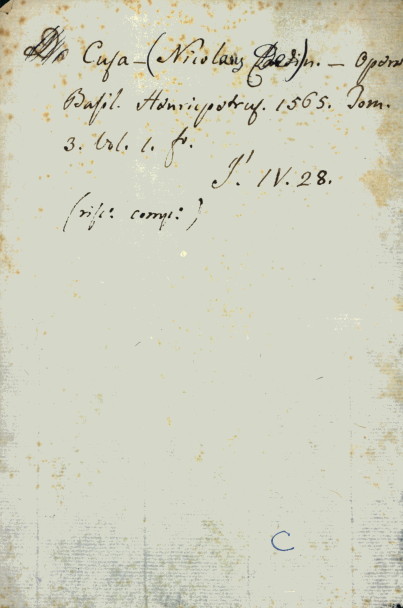 De Cusa - (Nicolaus Cardin.) - Opera
Basil. Henricpetrus. 1565. Tom.
3. Vol. 1. fo.
IV. 28.
(risc: comp:)
C